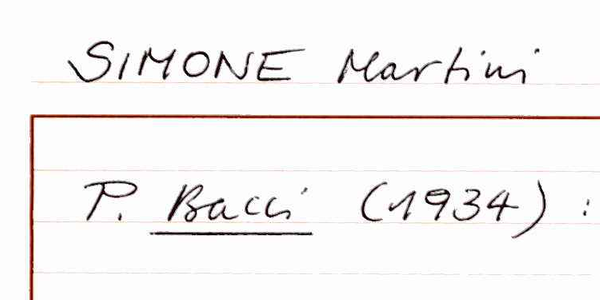 SIMONE Martini
P. Bacci (1934) :